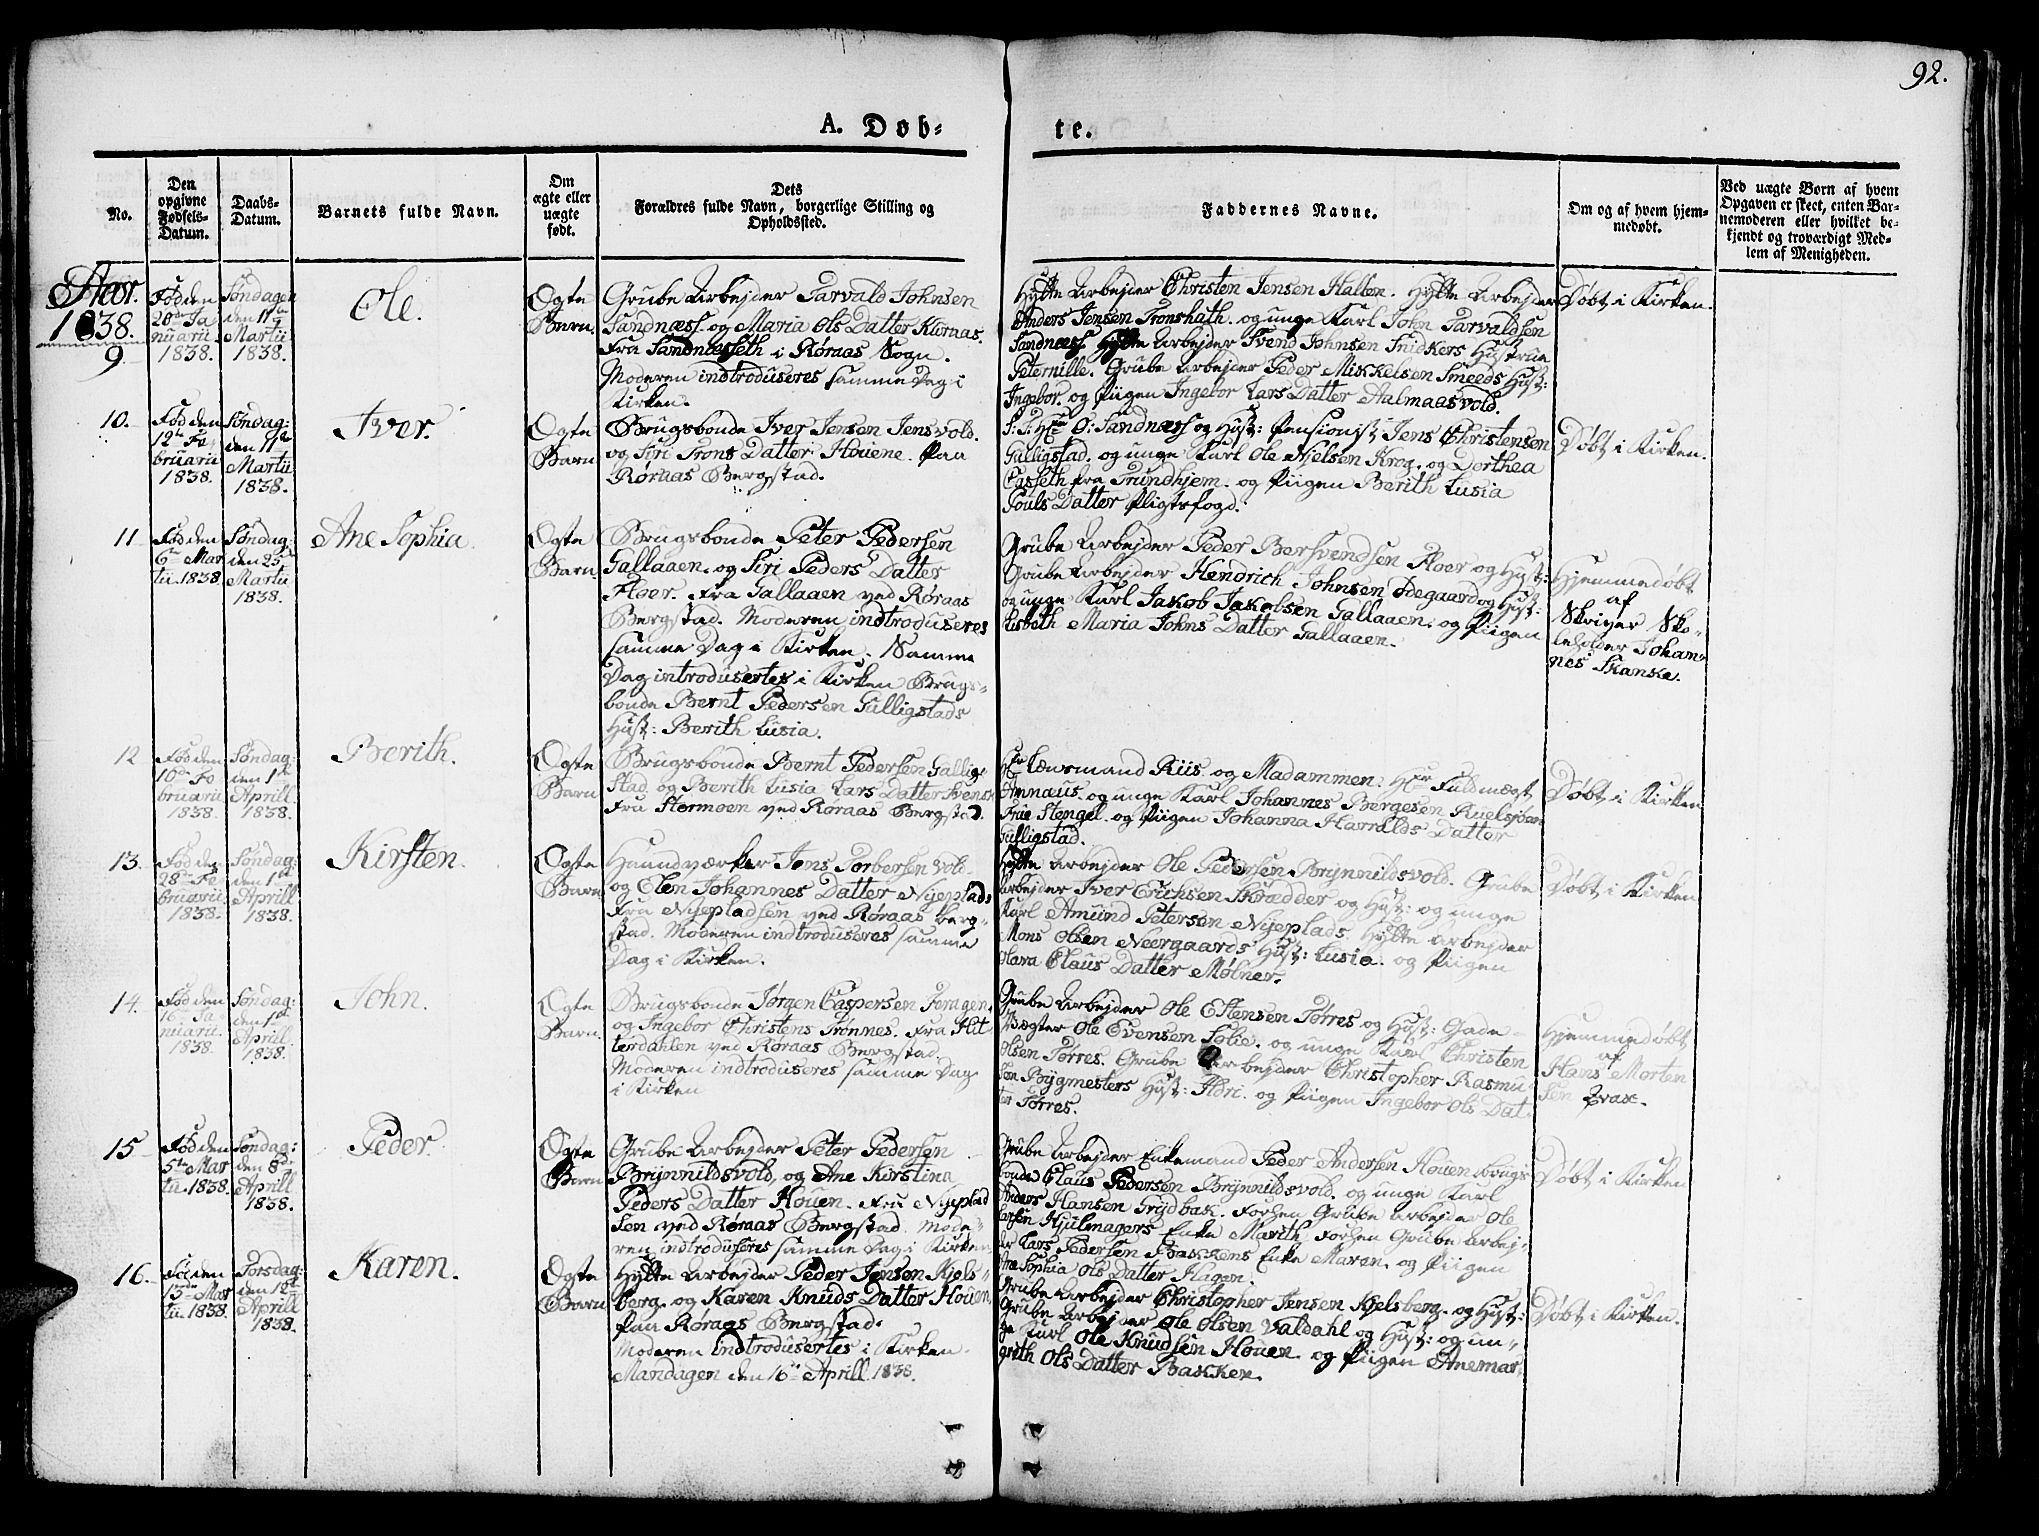 92.
A. Døb-
te.
No.
Den opgivne Fødsels-Datum.
Daabs-Datum.
Barnets fulde Navn.
Om ægte eller uægte født.
Dets Forældres fulde Navn, borgerlige Stilling og Opholdssted.
Faddernes Navne.
Om og af hvem hjem-medøbt.
Ved uægte Børn af hvem Opgaven er skeet, enten Bar-nemoderen eller hvilket be-kjendt og troværdigt Med-lem af Menigheden.
Aar.
1838.
9.
Fød den
20de Ja
nuarii
1838.
Søndagen
den 11te
Martii
1838.
Ole.
Ægte
Barn.
Grube Arbejder Tarvald Johnsen
Sandnæss og Maria Ols Datter Kuraas.
Fra Sandnæsseth i Røraas Sogn.
Moderen indtroduseres samme Dag i
Kirken.
Hytte Arbejder Christen Jensen Halten. Hytte Arbejder
Anders Jensen Tronshath. og unge Karl John Tarvaldsen
Sandnæss. Hytte Arbejder Svend Johnsen Snidkers Hustrue
Peternille. Grube Arbejder Peder Mikkelsen Smeeds Hust:
Ingebor. og Piigen Ingebor Lars Datter Aalmaasvold.
Døbt i Kirken.
10.
Fød den
12te Fe
bruarii
1838.
Søndag:
den 11te
Martii
1838.
Iver.
Ægte
Barn
Brugsbonde Iver Jensen Jensvold.
og Siri Trons Datter Houene. Paa
Røraas Bergstad.
S: T: Hr O: Sandnæss og Hust: Pensionist Jens Christensen
Gulligstad. og unge Karl Ole Njelsen Krog. og Dorthea
Casseth fra Trundhjem. og Piigen Berith Lusia
Pouls Datter Pligtsfogd.
Døbt i Kirken.
11
Fød den
6te Mar
tii. 1838
Søndag:
den 25de
Martii
1838.
Ane Sophia.
Ægte
Barn.
Brugsbonde Peter Pedersen
Gallaaen. og Siri Peders Datter
Floer. Fra Gallaaen ved Røraas
Bergstad. Moderen indtroduseres
samme Dag i Kirken. Samme
Dag introdusertes i Kirken Brugs-
bonde Bernt Pedersen Gulligstads
Hust: Berith Lusia.
Grube Arbejder Peder Bersvendsen Floer og Hust:
Grube Arbejder Hendrich Johnsen Ødegaard og Hust:
og unge Karl Jakob Jakobsen Gallaaen. og Piigen
Lisbeth Maria Johns Datter Gallaaen.
Hjemmedøbt
af
Skriver Sko-
leholder Johan-
nes Skanke.
12
Fød den
10de Fe
bruarii
1838.
Søndag:
den 1ste
Aprill
1838.
Berith.
Ægte
Barn
Brugsbonde Bernt Pedersen Gullig-
stad. og Berith Lusia Lars Datter Svensk
Fra Stormoen ved Røraas Bergstad.
Hr Lænsmand Riis og Madammen. Hr Fuldmægt.
Annæus. og unge Karl Johannes Bergesen Ruelsjøen
Frue Stengel. og Piigen Johanna Harralds Datter
Gulligstad.
Døbt i Kirken
13.
Fød den
28de Fe
bruarii
1838.
Søndag:
den 1ste
Aprill
1838.
Kirsten.
Ægte
Barn
Haandværker Jens Torbersen Vold.
og Elen Johannes Datter Nyeplads
Fra Nyepladsen ved Røraas Berg-
stad. Moderen indtroduseres samme
Dag i Kirken.
Hytte Arbejder Ole Pedersen Brynnildsvold. Grube
Arbejder Iver Erichsen Skrædder og Hust: og unge
Karl Amund Petersen Nyeplads. Hytte Arbejder
Mons Olsen Neergaards Hust: Lusia. og Piigen
Olava Claus Datter Mølner.
Døbt i Kirken
14.
Fød den
16de Ja
nuarii.
1838.
Søndag:
den 1ste
Aprill
1838.
John.
Ægte
Barn.
Brugsbonde Jørgen Caspersen Feragen.
og Ingebor Christens Trønnes. Fra Hit-
terdahlen ved Røraas Bergstad.
Moderen indtroduseres samme Dag
i Kirken
Grube Arbejder Ole Estensen Tørres og Hust: Gade-
Vægter Ole Evensen Solie. og unge Karl Christen
Olsen Tørres. Grube Arbejder Christopher Rasmu
sen Bygmesters Hust: Ildri. og Piigen Ingebor Ols Dat-
ter Tørres.
Hjemmedøbt
af
Hans Morten
sen Prax.
15
Fød den
5te Mar
tii. 1838.
Søndag:
den 8de
Aprill
1838.
Peder.
Ægte
Barn
Grube Arbejder Peter Pedersen
Brynnildsvold, og Ane Kirstina
Peders Datter Houen. Fra Nyeplad
sen ved Røraas Bergstad. Mode-
ren indtroduseres samme Dag i Kirken.
Grube Arbejder Enkemand Peder Andersen Houen. brugs
bonde Claus Pedersen Brynnildsvold. og unge Karl
Anders Hansen Frydbak. Forhen Grube Arbejder Ole
Larsen Hjulmagers Enke Marith. Forhen Grube Arbej-
der Lars Pedersen Bakkens Enke Maren. og Piigen
Ane Sophia Ols Datter Hagen.
Døbt i Kirken
16.
Fød den
13de Mar
tii. 1838.
Torsdag:
den 12te
Aprill
1838.
Karen.
Ægte
Barn
Hytte Arbejder Peder Jensen Kjels-
berg. og Karen Knuds Datter Houen.
Paa Røraas Bergstad.
Moderen Indtrodusertes i Kirken
Mandagen den 16de Aprill. 1838.
Grube Arbejder Christopher Jensen Kjelsberg. og Hust:
Grube Arbejder Ole Olsen Valdahl og Hust: og un-
ge Karl Ole Knudsen Houen. og Piigen Anemar
greth Ols Datter Bakken.
Døbt i Kirken.